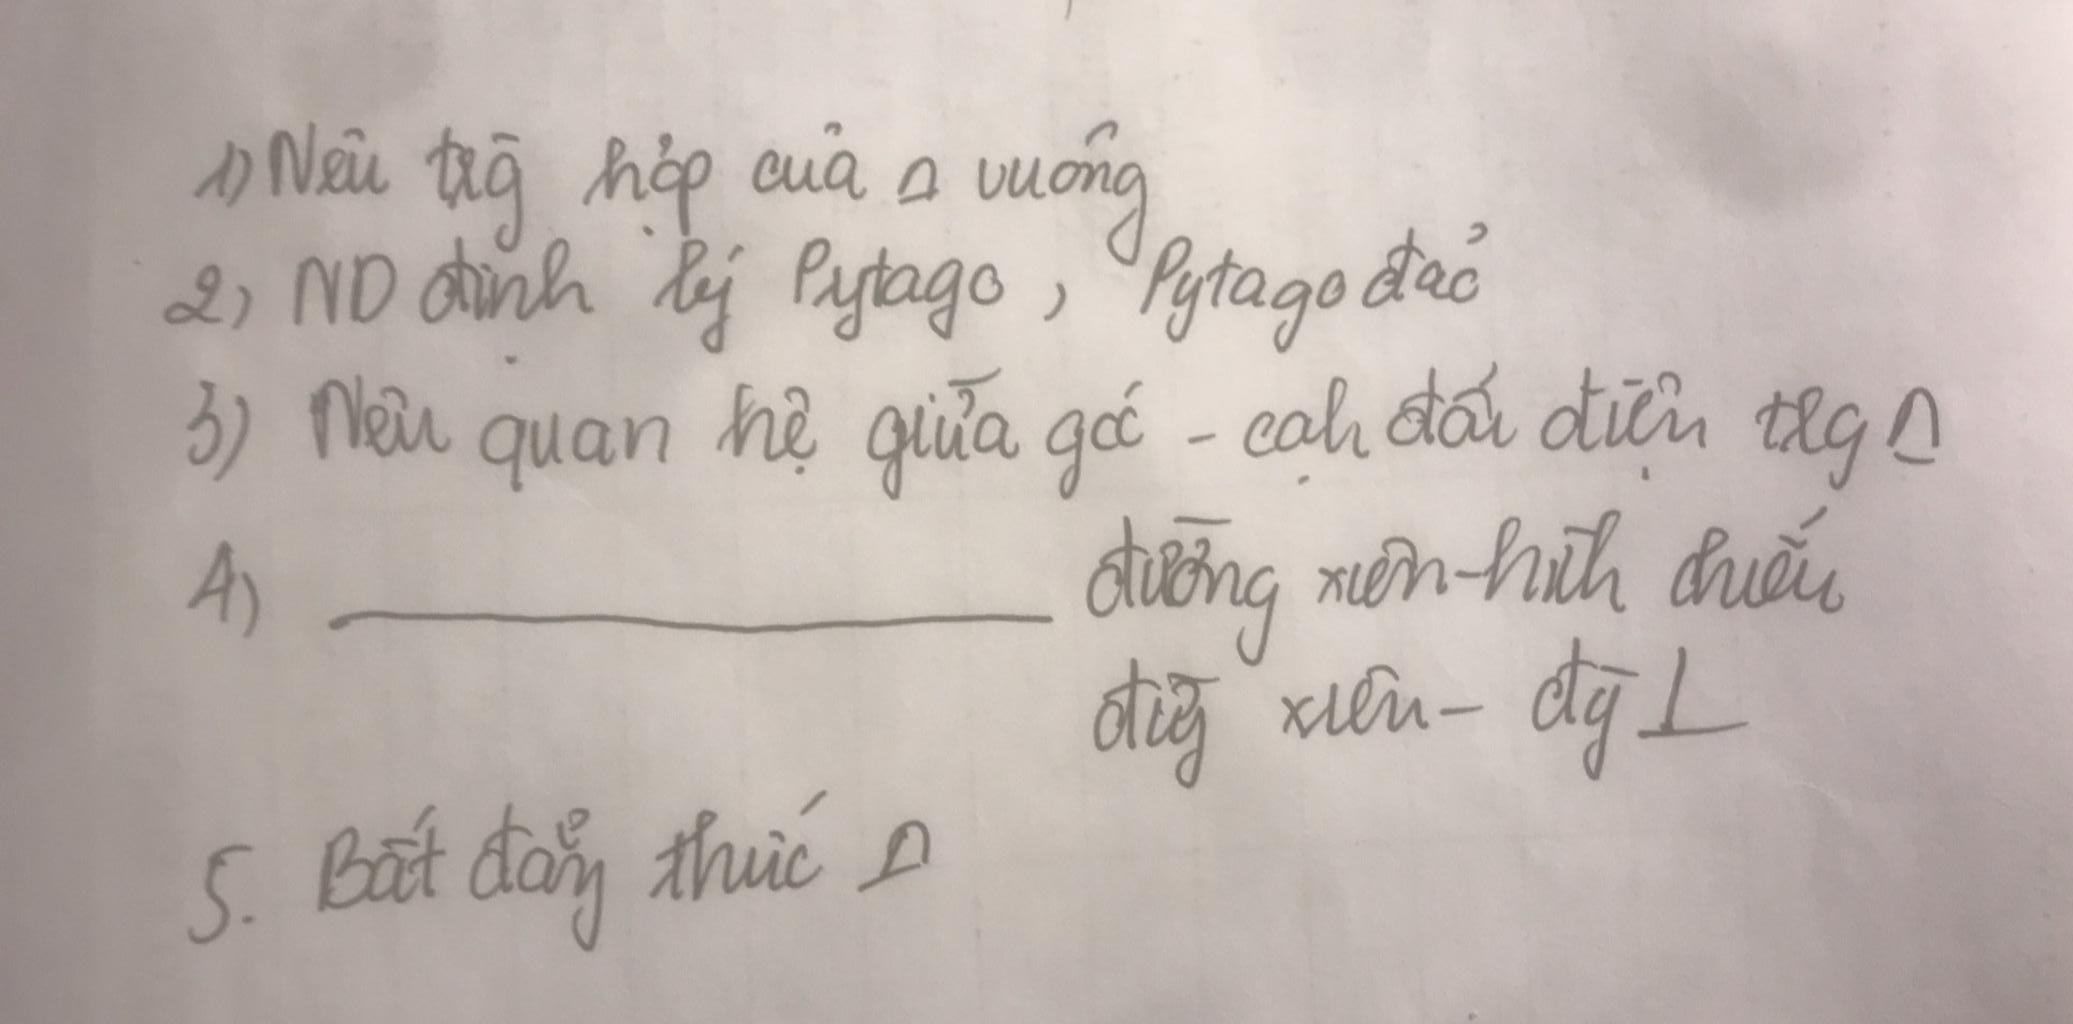 1) Nêu trg̀ hợp của Δ vuông
2) ND định lý Pytago, Pytago đảo
3) Nêu quan hệ giữa góc - cạh đối diện trg Δ
4) ____________ đường xiên-hìh chiếu
đườg xiên - đg̀ ⊥
5. Bất đẳg thức Δ